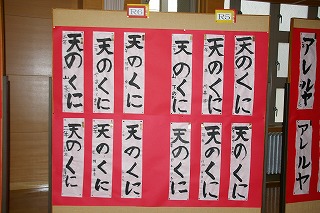 R6
R5
天のくに
天のくに
天のくに
天のくに
天のくに
天のくに
天のくに
天のくに
天のくに
天のくに
天のくに
天のくに
アレルヤ
アレルヤ